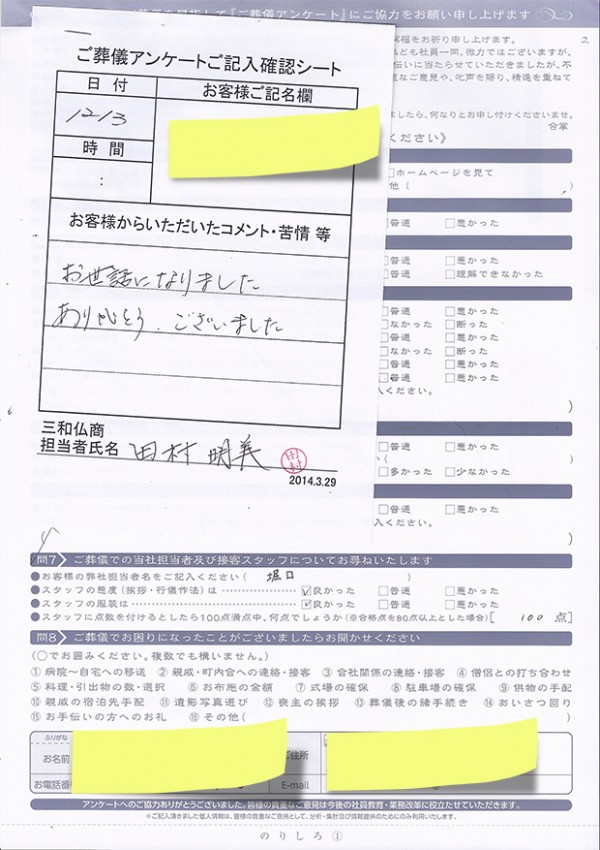 葬儀を目指して『ご葬儀アンケート』にご協力をお願い申し上げます
2
福をお祈り申し上げます。
ども社員一同、微力ではございますが、
伝いに当たらせていただきましたが、不
直なご意見や、叱声を賜り、精進を重ねて
ましたら、何なりとお申し付けくださいませ。
合掌
ください》
ご葬儀アンケートご記入確認シート
日付
お客様ご記名欄
12/13
時間
:
お客様からいただいたコメント・苦情 等
お世話になりました
ありがとう、ございました
三和仏商
担当者氏名 田村 明美
田村
2014.3.29
□ホームページを見て
他（
□普通 □悪かった
□普通 □悪かった
□普通 □理解できなかった
□普通 □悪かった
□なかった □断った
□普通 □悪かった
□なかった □断った
□普通 □悪かった
□普通 □悪かった
ください。
）
□普通 □悪かった
（ ）
□多かった □少なかった
□普通 □悪かった
ください。
）
問7 ご葬儀での当社担当者及び接客スタッフについてお尋ねいたします
●お客様の弊社担当者名をご記入ください（ 堀口 ）
●スタッフの態度（挨拶・行儀作法）は ☑良かった □普通 □悪かった
●スタッフの服装は ☑良かった □普通 □悪かった
●スタッフに点数を付けるとしたら100点満点中、何点でしょうか（※合格点を80点以上とした場合）[ 100 点]
問8 ご葬儀でお困りになったことがございましたらお聞かせください
（○でお囲みください。複数でも構いません。）
①病院～自宅への移送 ②親戚・町内会への連絡・接客 ③会社関係の連絡・接客 ④僧侶との打ち合わせ
⑤料理・引出物の数・選択 ⑥お布施の金額 ⑦式場の確保 ⑧駐車場の確保 ⑨供物の手配
⑩親戚の宿泊先手配 ⑪遺影写真選び ⑫喪主の挨拶 ⑬葬儀後の諸手続き ⑭あいさつ回り
⑮お手伝いの方へのお礼 ⑯その他（ ）
ふりがな
お名前
ご住所
お電話番
E-mail
アンケートへのご協力ありがとうございました。皆様の貴重なご意見は今後の社員教育・業務改革に役立たせていただきます。
※ご記入頂きました個人情報は、皆様の貴重なご意見として、分析・集計及び情報提供のためにのみ利用いたします。
のりしろ①